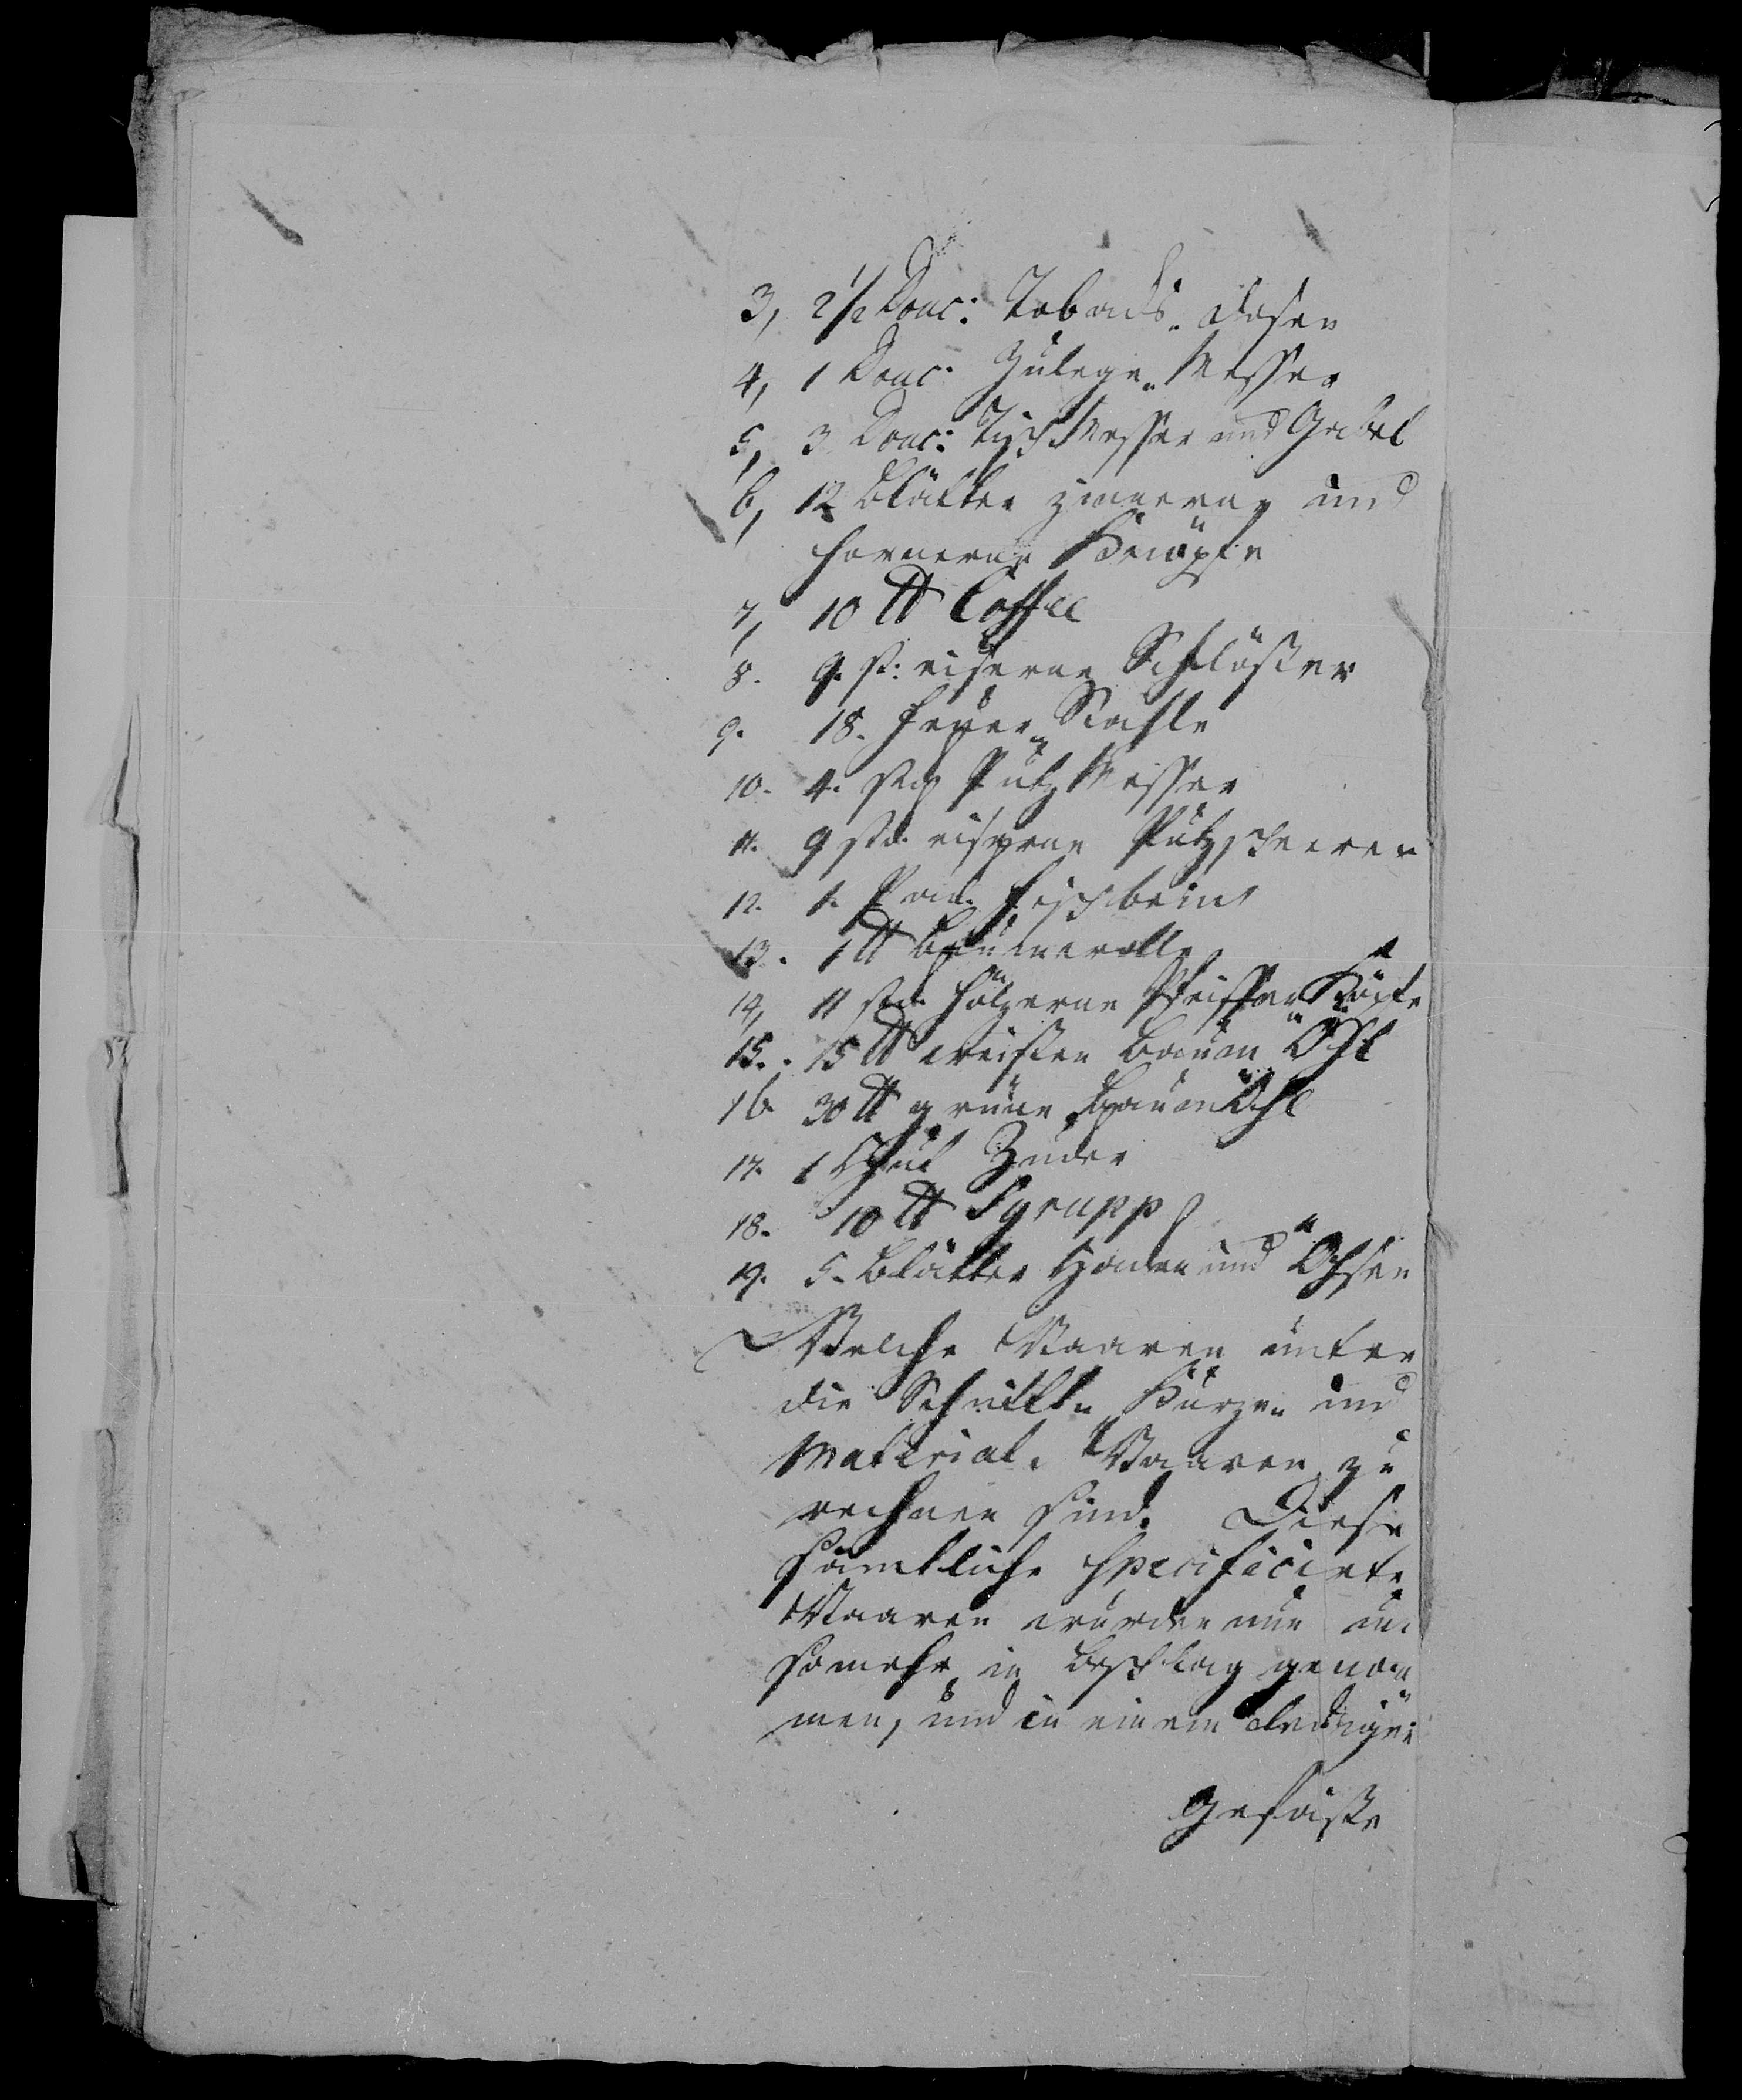 3, 2 1/2 Douc: Tobacks-Dosen
4, 1 Douc: Zulege-Messer
5, 3 Douc: Tisch Messer und Gabel
6, 12 Blätter zinnerne und
hornerne Knöpfe
7, 10 ℔ Coffee
8. 9. st: eiserne Schlößer
9. 18. Feuer Stahle
10. 4. stck Putz Messer
11. 9 stck. eiserne Putzscheeren
12. 1. Pack. Fischbein
13. 1 ℔ Baumwolle
14, 11 stck. hölzerne Pfeiffen Köpfe
15. 15 ℔ weißen Baum Öhl
16 30 ℔ grüne Baum Öhl
17. 1 Huth Zucker
18. 10 ℔ Syrupp
19. 5. Blätter Hacken und Öhsen
Welche Waaren unter
die Schnitt- Kurze- und
Material-Waaren zu
rechnen sind. Diese
sämtliche specificirte
Waaren wurden nun um
somehr in Beschlag genom
men, und in einem ledigen
Gefäße